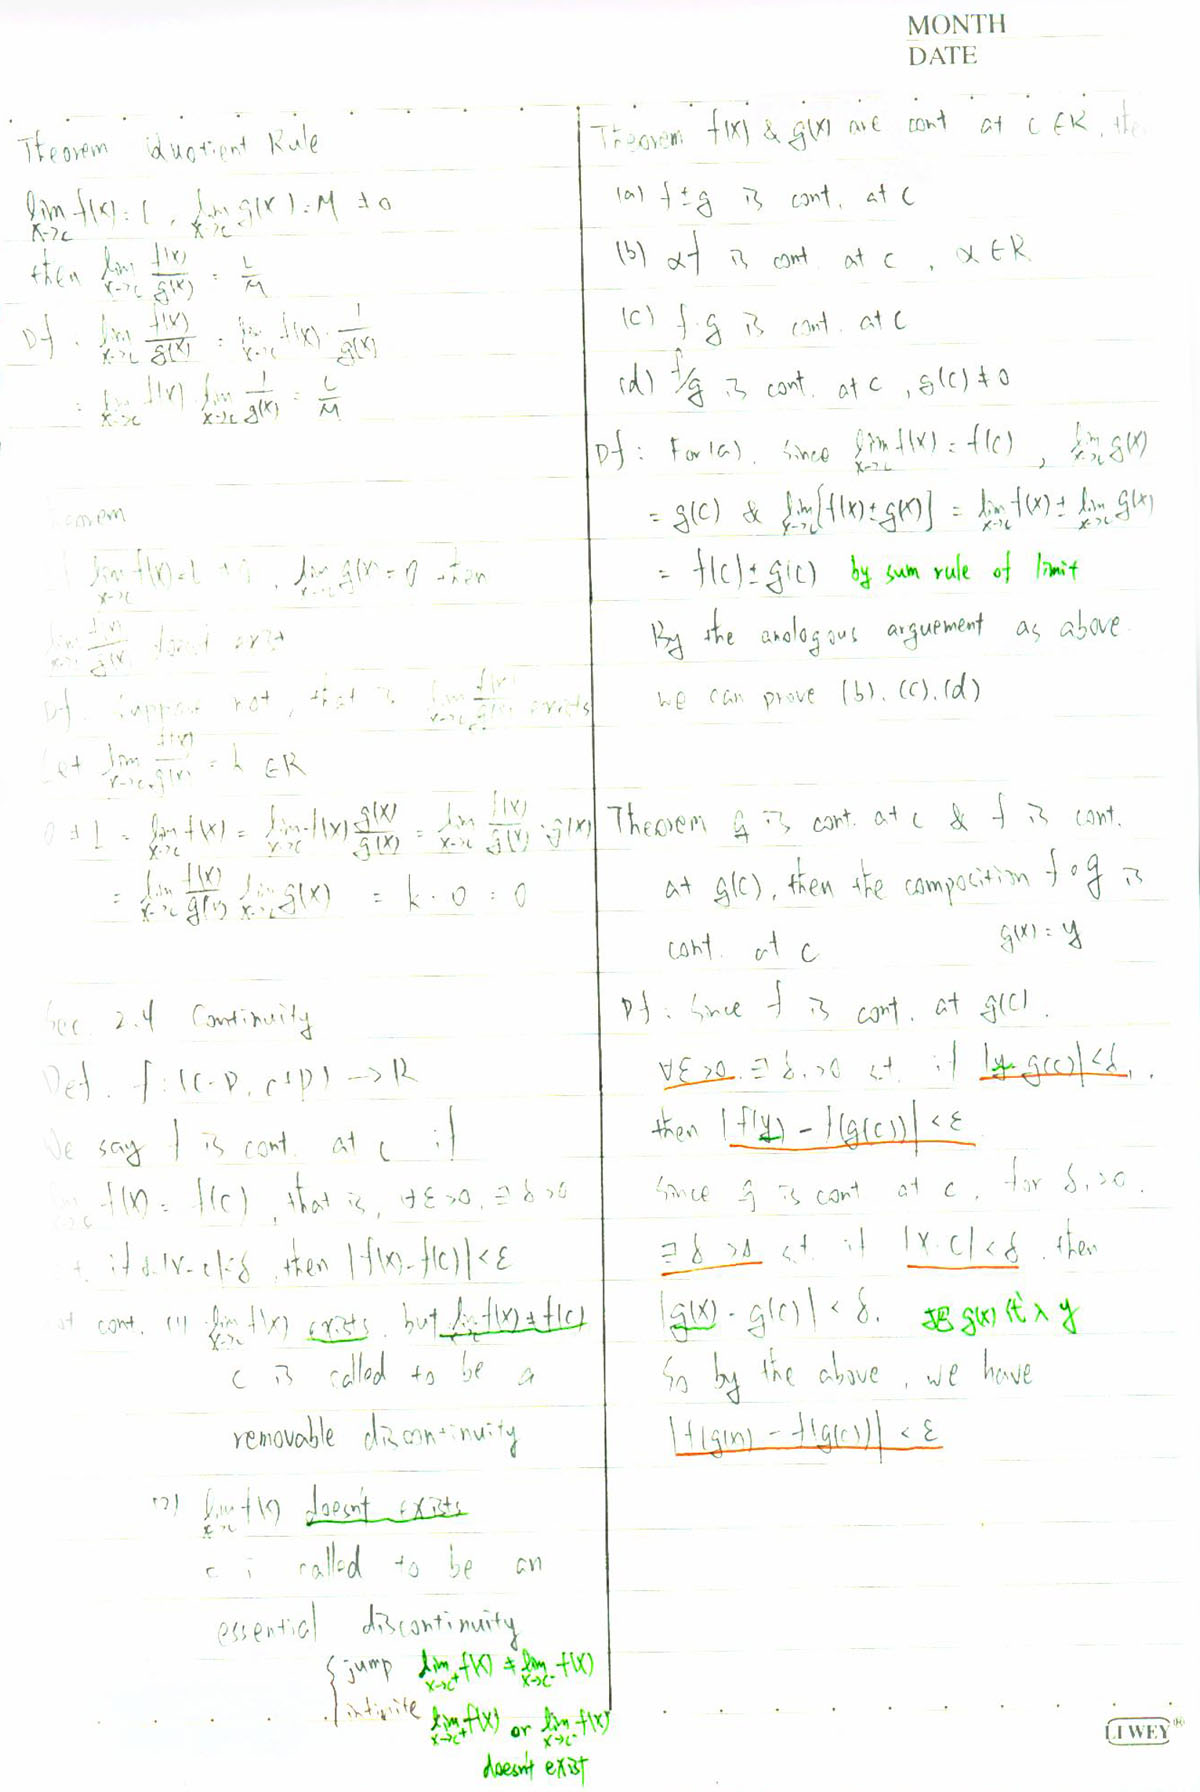 MONTH
DATE
Theorem Quotient Rule
lim x→c f(x) = L , lim x→c g(x) = M ≠ 0
then lim x→c f(x)/g(x) = L/M
Pf : lim x→c f(x)/g(x) = lim x→c f(x) · 1/g(x)
= lim x→c f(x) lim x→c 1/g(x) = L/M
lim x→c f(x) = L ≠ 0 , lim x→c g(x) = 0 then
f(x)/g(x) doesn't exist
Pf. Suppose not, that is lim x→c f(x)/g(x) exists
Let lim x→c f(x)/g(x) = k ∈ R
0 ≠ L = lim x→c f(x) = lim x→c f(x) g(x)/g(x) = lim x→c f(x)/g(x) · g(x)
= lim x→c f(x)/g(x) lim x→c g(x) = k · 0 = 0
Sec. 2.4 Continuity
Def. f : (c-p, c+p) → R
We say f is cont. at c if
f(x) = f(c), that is, ∀ε>0, ∃ δ>0
if |x-c|<δ, then |f(x)-f(c)|<ε
cont. (1) lim x→c f(x) exists, but lim x→c f(x) ≠ f(c)
c is called to be a
removable discontinuity
(2) lim x→c f(x) doesn't exists
c i called to be an
essential discontinuity
{ jump lim x→c⁺ f(x) ≠ lim x→c⁻ f(x)
infinite lim x→c⁺ f(x) or lim x→c⁻ f(x)
doesn't exist
Theorem f(x) & g(x) are cont at c ∈ R, the
(a) f ± g is cont. at c
(b) αf is cont. at c , α ∈ R
(c) f · g is cont. at c
(d) f/g is cont. at c , g(c) ≠ 0
Pf : For (a), since lim x→c f(x) = f(c) , lim x→c g(x)
= g(c) & lim x→c [f(x) ± g(x)] = lim x→c f(x) ± lim x→c g(x)
= f(c) ± g(c) by sum rule of limit
By the anologous arguement as above
we can prove (b), (c), (d)
Theorem g is cont. at c & f is cont.
at g(c), then the composition f∘g is
cont. at c
g(x) = y
Pf : Since f is cont. at g(c).
∀ε>0, ∃ δ₁>0 s.t. if |y - g(c)| < δ₁,
then |f(y) - f(g(c))| < ε
Since g is cont at c, for δ₁>0,
∃ δ>0 s.t. if |x-c|<δ, then
|g(x) - g(c)| < δ₁ 把 g(x) 代入 y
So by the above, we have
|f(g(x)) - f(g(c))| < ε
LIWEY®